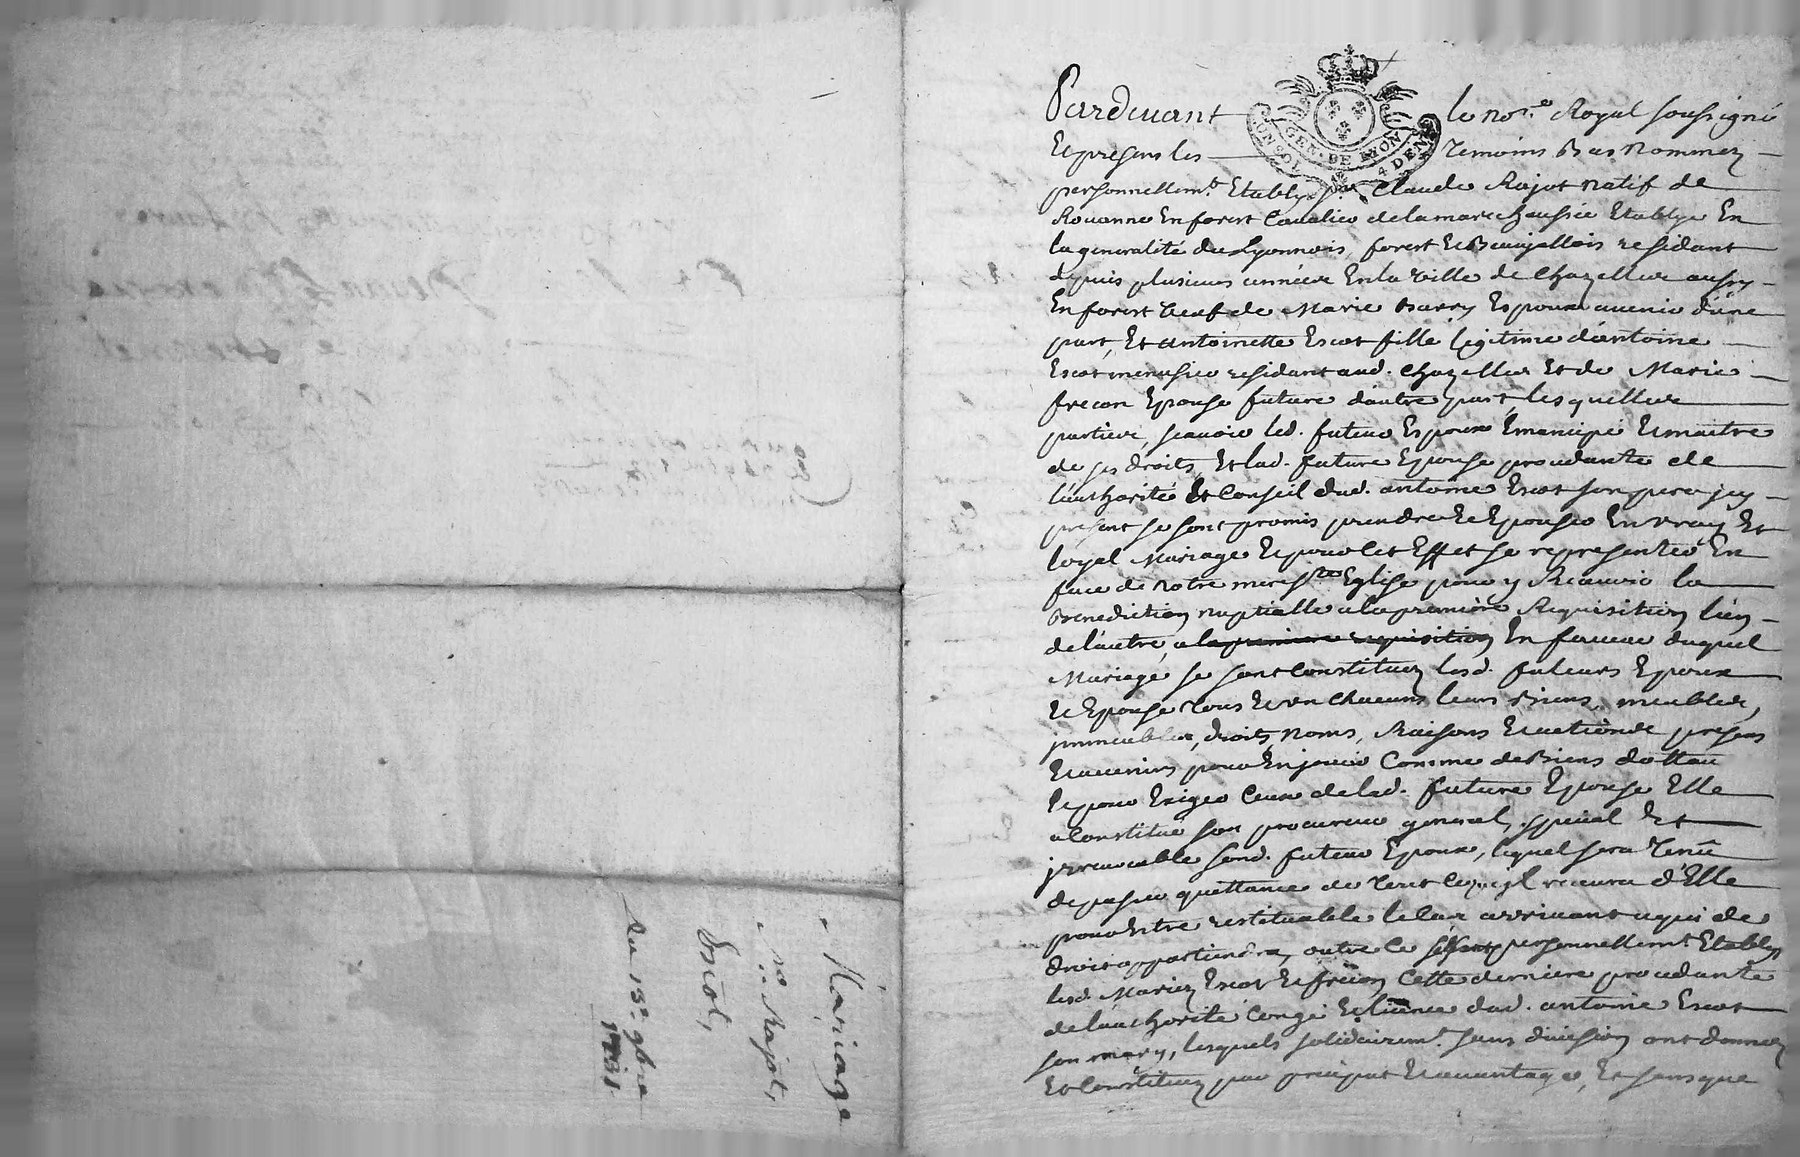 Mariage
no. Rajot,
Escot,
Du 13e. 9bre
1731
Pardevant le nore. Royal soussigné
Et presens les temoins Bas Nommez
GEN. DE LYON
UN SOL 4 DEN.
personnellemt. Etably sr. Claude Rajot natif de
Rouanne En forest Cavalier de la marechaussée Etablye En
la generalité du Lyonnois, forest Et Beaujollois residant
depuis plusieurs années En la ville de Chazelles
En forest veuf de Marie Barry Espoux avenir d'une
part, Et antoinette Escot fille legitime d'antoine
Escot menusier residant aud. Chazelles Et de Marie
frecon Epouse future d'autre part, lesquelles
parties, scavoir led. futur Espoux Emancipé Et maitre
de ses droits, Et lad. future Epouse procedante de
l'authorité Et Conseil dud. antoine Escot son pere jcy
present se sont promis prendre Et Epouser En vray Et
loyal Mariage Et pour Cet Effet se representer En
face de notre mere Ste Eglise pour y Recevoir la
Benediction nuptialle a la premiere Requisition l'un
de l'autre, a la premiere requisition En faveur duquel
Mariage se sont Constituez lesd. futurs Epoux
Et Epouse tous Et un Chacuns leurs Biens, meubles,
jmmeubles, droits, Noms, Raisons Et actions presens
Et avenirs pour En jouir Comme de Biens dottau
Et pour Exiger Ceux de lad. future Epouse Elle
a Constitué son procureur general, special Et
jrrevocable sond. futur Epoux, lequel sera tenu
de passer quettance de tout Ce qu'jl recevra d'Elle
pour Etre restituable le Cas arrivant a qui de
droit appartiendra, outre ce personnellemt. Etablys
lesd. Mariez Escot Et frecon Cette derniere procedante
de l'authorité Congé Et licence dud. antoine Escot
son mary, lesquels solidairemt. sans division ont donnez
Et Constituez par preciput Et avantage, Et sans que